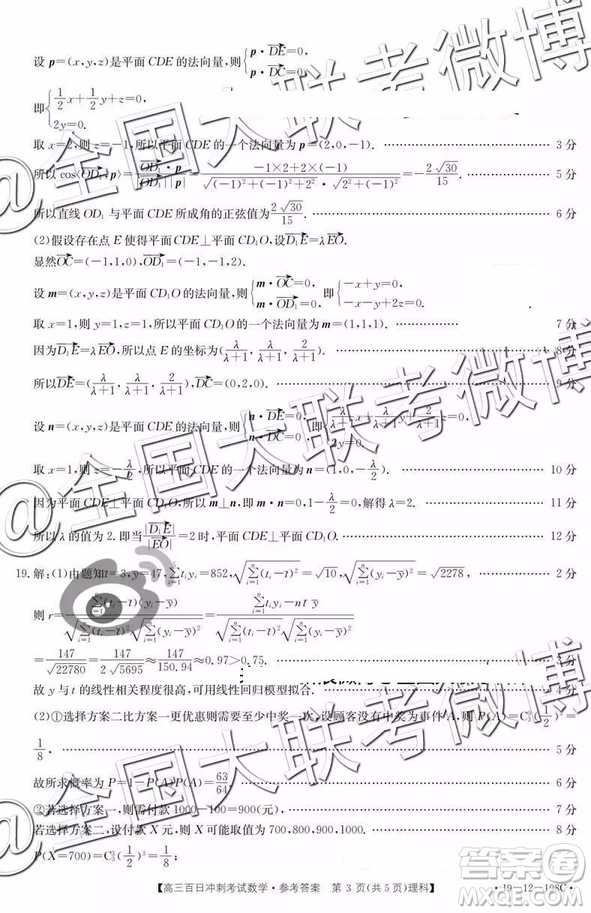 设 p=(x,y,z)是平面 CDE 的法向量,则{p·DE=0, p·DC=0,
即{1/2x+1/2y+z=0, 2y=0.
取 x=2,则 z=-1,所以平面 CDE 的一个法向量为 p=(2,0,-1). 3 分
所以 cos⟨OD₁,p⟩=OD₁·p/|OD₁||p|=(-1×2+2×(-1))/(√((-1)²+(-1)²+2²)·√(2²+(-1)²))=-2√30/15 5 分
所以直线 OD₁ 与平面 CDE 所成角的正弦值为 2√30/15. 6 分
(2)假设存在点 E 使得平面 CDE⊥平面 CD₁O,设D₁E=λEO.
显然OC=(-1,1,0),OD₁=(-1,-1,2).
设 m=(x,y,z)是平面 CD₁O 的法向量,则{m·OC=0, m·OD₁=0, 即{-x+y=0, -x-y+2z=0.
取 x=1,则 y=1,z=1,所以平面 CD₁O 的一个法向量为 m=(1,1,1). 7 分
因为D₁E=λEO,所以点 E 的坐标为(λ/(λ+1),λ/(λ+1),2/(λ+1)). 8 分
所以DE=(λ/(λ+1),λ/(λ+1),2/(λ+1)),DC=(0,2,0). 9 分
设 n=(x,y,z)是平面 CDE 的法向量,则
取 x=1,则 z=-λ/2,所以平面 CDE 的一个法向量为 n=(1,0,-λ/2). 10 分
因为平面 CDE⊥平面 CD₁O,所以 m⊥n,即 m·n=0,1-λ/2=0,解得 λ=2. 11 分
所以 λ 的值为 2. 即当|D₁E|/|EO|=2 时,平面 CDE⊥平面 CD₁O. 12 分
19.解:(1)由题知t=3,y=47,∑tᵢyᵢ=852,√∑(tᵢ-t)²=√10,√∑(yᵢ-y)²=√2278, 2 分
则 r=∑(tᵢ-t)(yᵢ-y)/(√∑(tᵢ-t)²√∑(yᵢ-y)²)=(∑tᵢyᵢ-nt y)/(√∑(tᵢ-t)²√∑(yᵢ-y)²)
=147/√22780=147/(2√5695)≈147/150.94≈0.97>0.75. 3 分
故 y 与 t 的线性相关程度很高,可以用线性回归模型拟合. 4 分
(2)①选择方案二比方案一更优惠则需要至少中奖一次,设顾客没有中奖为事件A,则 P(A)=C₃⁰(1/2)³=
1/8, 5 分
故所求概率为 P=1-P(A)P(A)=63/64. 6 分
②若选择方案一,则需付款 1000-100=900(元), 7 分
若选择方案二,设付款 X 元,则 X 可能取值为 700,800,900,1000. 8 分
P(X=700)=C₃³(1/2)³=1/8,
【高三百日冲刺考试数学·参考答案 第 3 页(共 5 页)理科】
·19-12-198C·
@全国大联考微博
@全国大联考微博
@全国大联考微博
答案圈